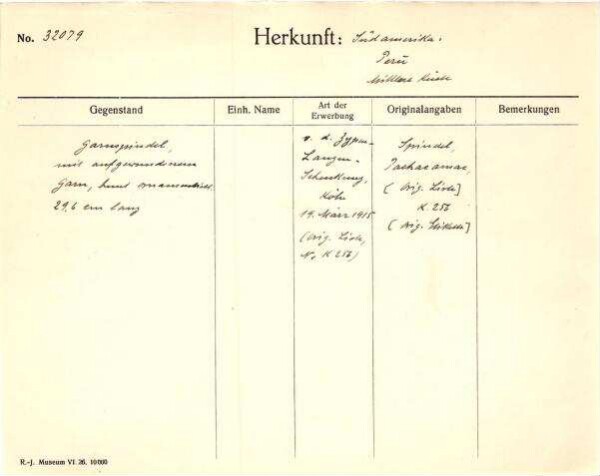 No. 32079
Herkunft: Südamerika.
Perú
Mittlere Küste
Gegenstand
Einh. Name
Art der Erwerbung
Originalangaben
Bemerkungen
Garnspindel,
mit aufgewundenem
Garn, bunt ornamentiert
29,6 cm lang
v. d. Zypen-
Langen-
Schenkung,
Köln
19. März 1915
(Orig. Liste,
No K 256)
Spindel,
Pachacamac,
( Orig. Liste]
K. 256
( Orig. Etikette]
R.-J. Museum VI. 26. 10000